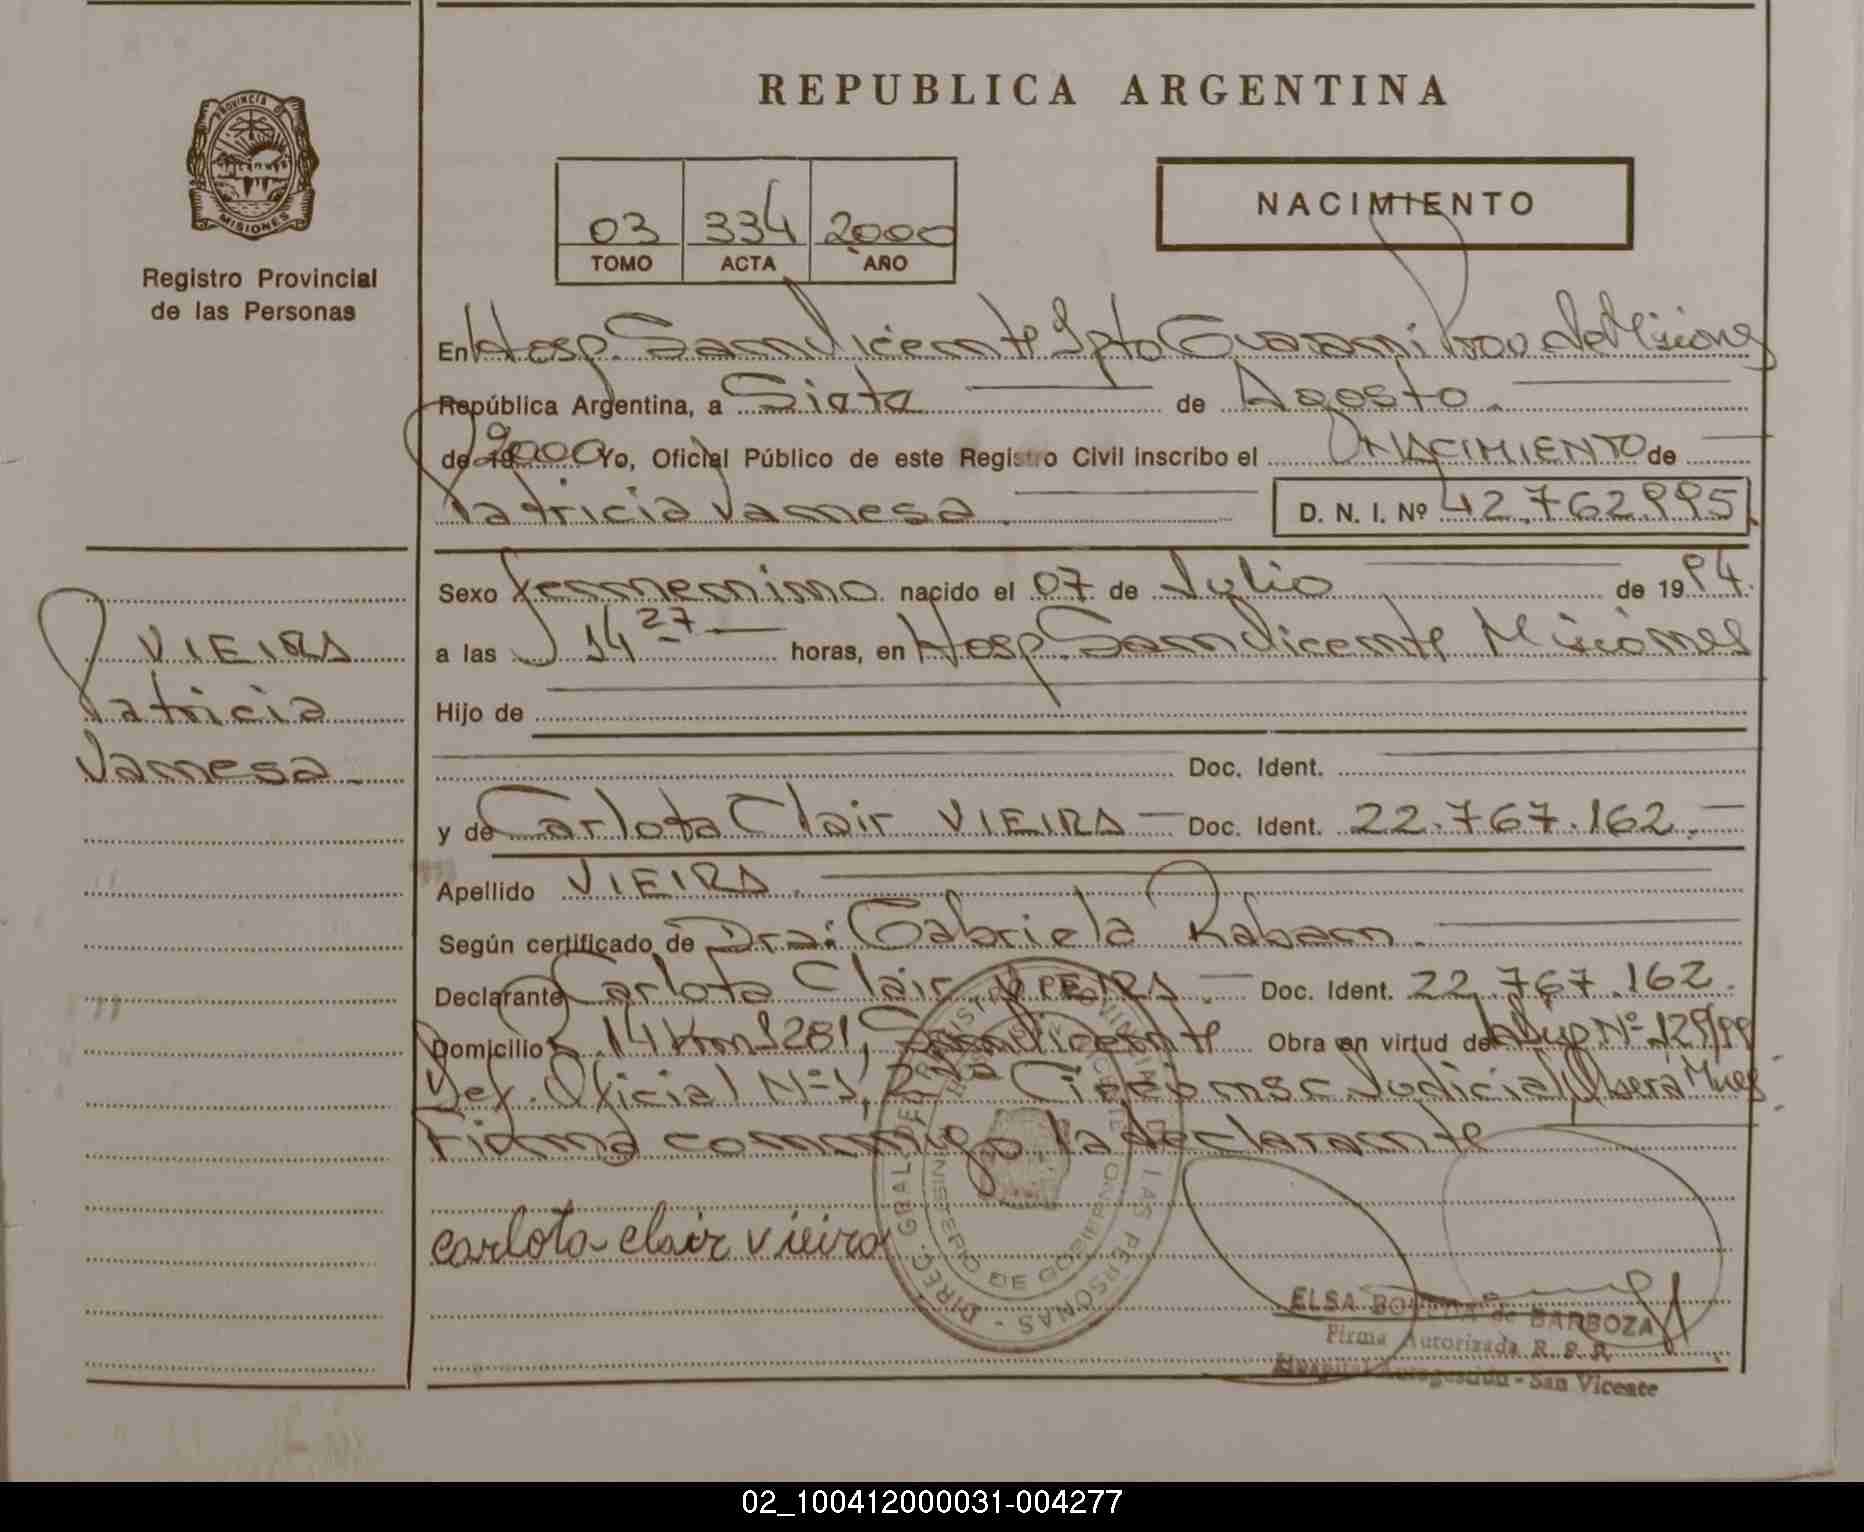 REPUBLICA ARGENTINA
PROVINCIA DE
MISIONES
Registro Provincial
de las Personas
03 334 2000
TOMO ACTA AÑO
NACIMIENTO
En Hosp. San Vicente Dpto Guarani Prov de Misiones
República Argentina, a Siete de Agosto.
de 19 2000 Yo, Oficial Público de este Registro Civil inscribo el NACIMIENTO de
Patricia Vanesa. D. N. I. Nº 42.762.995
Sexo Femenino nacido el 07 de Julio de 1994.
a las 14 27 horas, en Hosp. San Vicente Misiones
Hijo de
Doc. Ident.
y de Carlota Clair VIEIRA Doc. Ident. 22.767.162.
Apellido VIEIRA.
Según certificado de Dra: Gabriela
Declarante Carlota Clair VIEIRA. Doc. Ident. 22.767.162.
Domicilio 14 Km 1281, San Vicente Obra en virtud de Nº 129/99
Def. Oficial Nº 1, 2da Circonsc Judicial, Obera Mnes
Firma conmigo la declarante
VIEIRA
Patricia
Vanesa.
carlota clair vieira
DIREC. GRAL. DE REGISTRO PROVINCIAL DE LAS PERSONAS
MINISTERIO DE GOBIERNO
ELSA de BARBOZA
Firma Autorizada R. P. P.
Hospital Autogestión - San Vicente
02_100412000031-004277